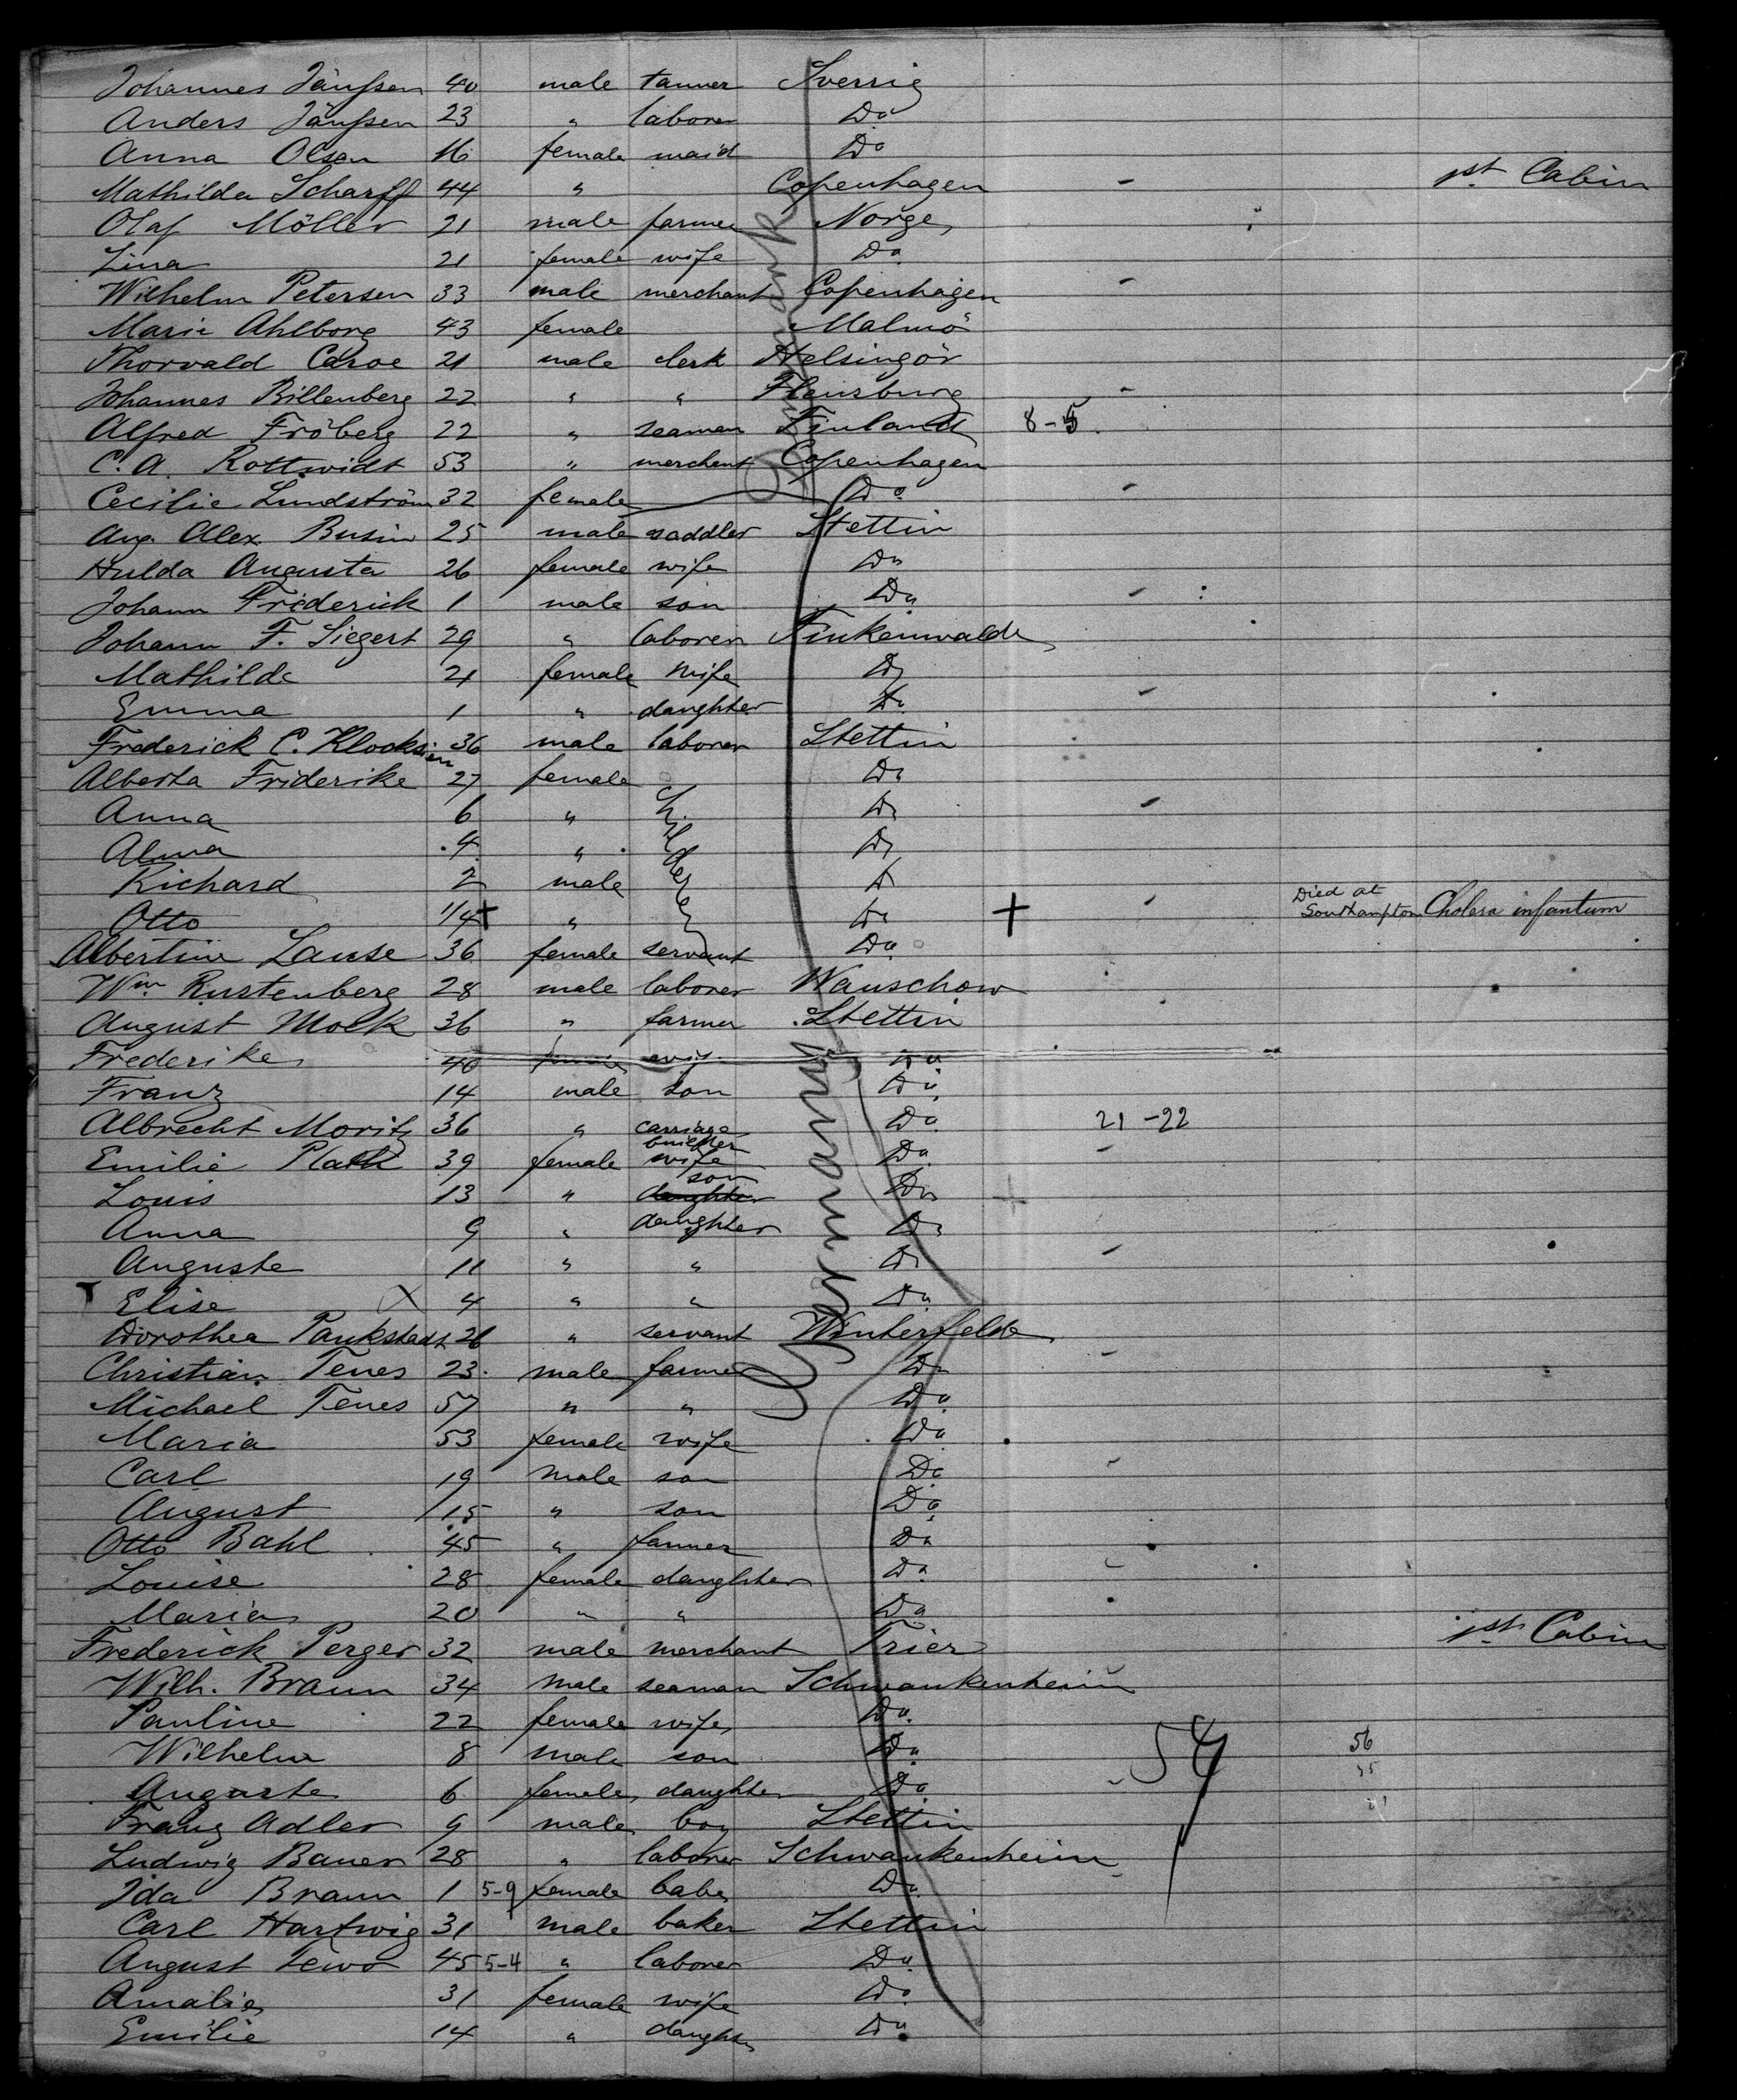 Johannes Jänssen 40 male tanner Sverrig
Anders Jänssen 23 " laborer Do
Anna Olsen 16 female maid Do
Mathilda Scharff 44 " Copenhagen - 1st Cabin
Olaf Möller 21 male farmer Norge
Lina 21 female wife Do
Wilhelm Petersen 33 male merchant Copenhagen -
Marie Ahlborg 43 female Malmö
Thorvald Caroe 21 male clerk Helsingör
Johannes Billenberg 22 " " Flensburg -
Alfred Fröberg 22 " seaman Finland 8-5
C. A. Rottwidt 53 " merchant Copenhagen
Cecilie Lundström 32 female Do -
Aug. Alex Busin 25 male saddler Stettin
Hulda Augusta 26 female wife Do
Johann Friderick 1 male son Do -
Johann F. Siegert 29 " laborer Finkenwalde
Mathilde 21 female wife Do
Emma 1 " daughter Do -
Frederick C. Klocksien 36 male laborer Stettin
Alberta Friderike 27 female Do
Anna 6 " Do -
Alma 4 " Do
Richard 2 male Do
Otto 1/4 + " Do + - Died at Southampton Cholera infantum
Albertine Lause 36 female servant Do
Wm Rustenberg 28 male laborer Wauschow
August Mock 36 " farmer Stettin
Frederike 40 Do
Franz 14 male son Do
Albrecht Moritz 36 " carriage builder Do 21-22
Emilie Plath 39 female wife Do -
Louis 13 " daughter son Do
Anna 9 " daughter Do
Auguste 11 " " Do -
Elise X 4 " " Do
Dorothea Paukstadt 26 " servant Winterfelde
Christian Tenes 23 male farmer Do -
Michael Tenes 57 " " Do
Maria 53 female wife Do
Carl 19 male son Do -
August 15 " son Do
Otto Bahl 45 " farmer Do
Louise 28 female daughter Do -
Maria 20 " " Do
Frederick Perger 32 male merchant Trier 1st Cabin
Wilh. Braun 34 male seaman Schwankenheim
Pauline 22 female wife Do
Wilhelm 8 male son Do 54 56
Auguste 6 female daughter Do -
Franz Adler 9 male boy Stettin
Ludwig Bauer 28 " laborer Schwankenheim
Ida Braun 1 5-9 female babe Do
Carl Hartwig 31 male baker Stettin
August Lewo 45 5-4 " laborer Do
Amalie 31 female wife Do
Emilie 14 " daughter Do
Denmark
Germany